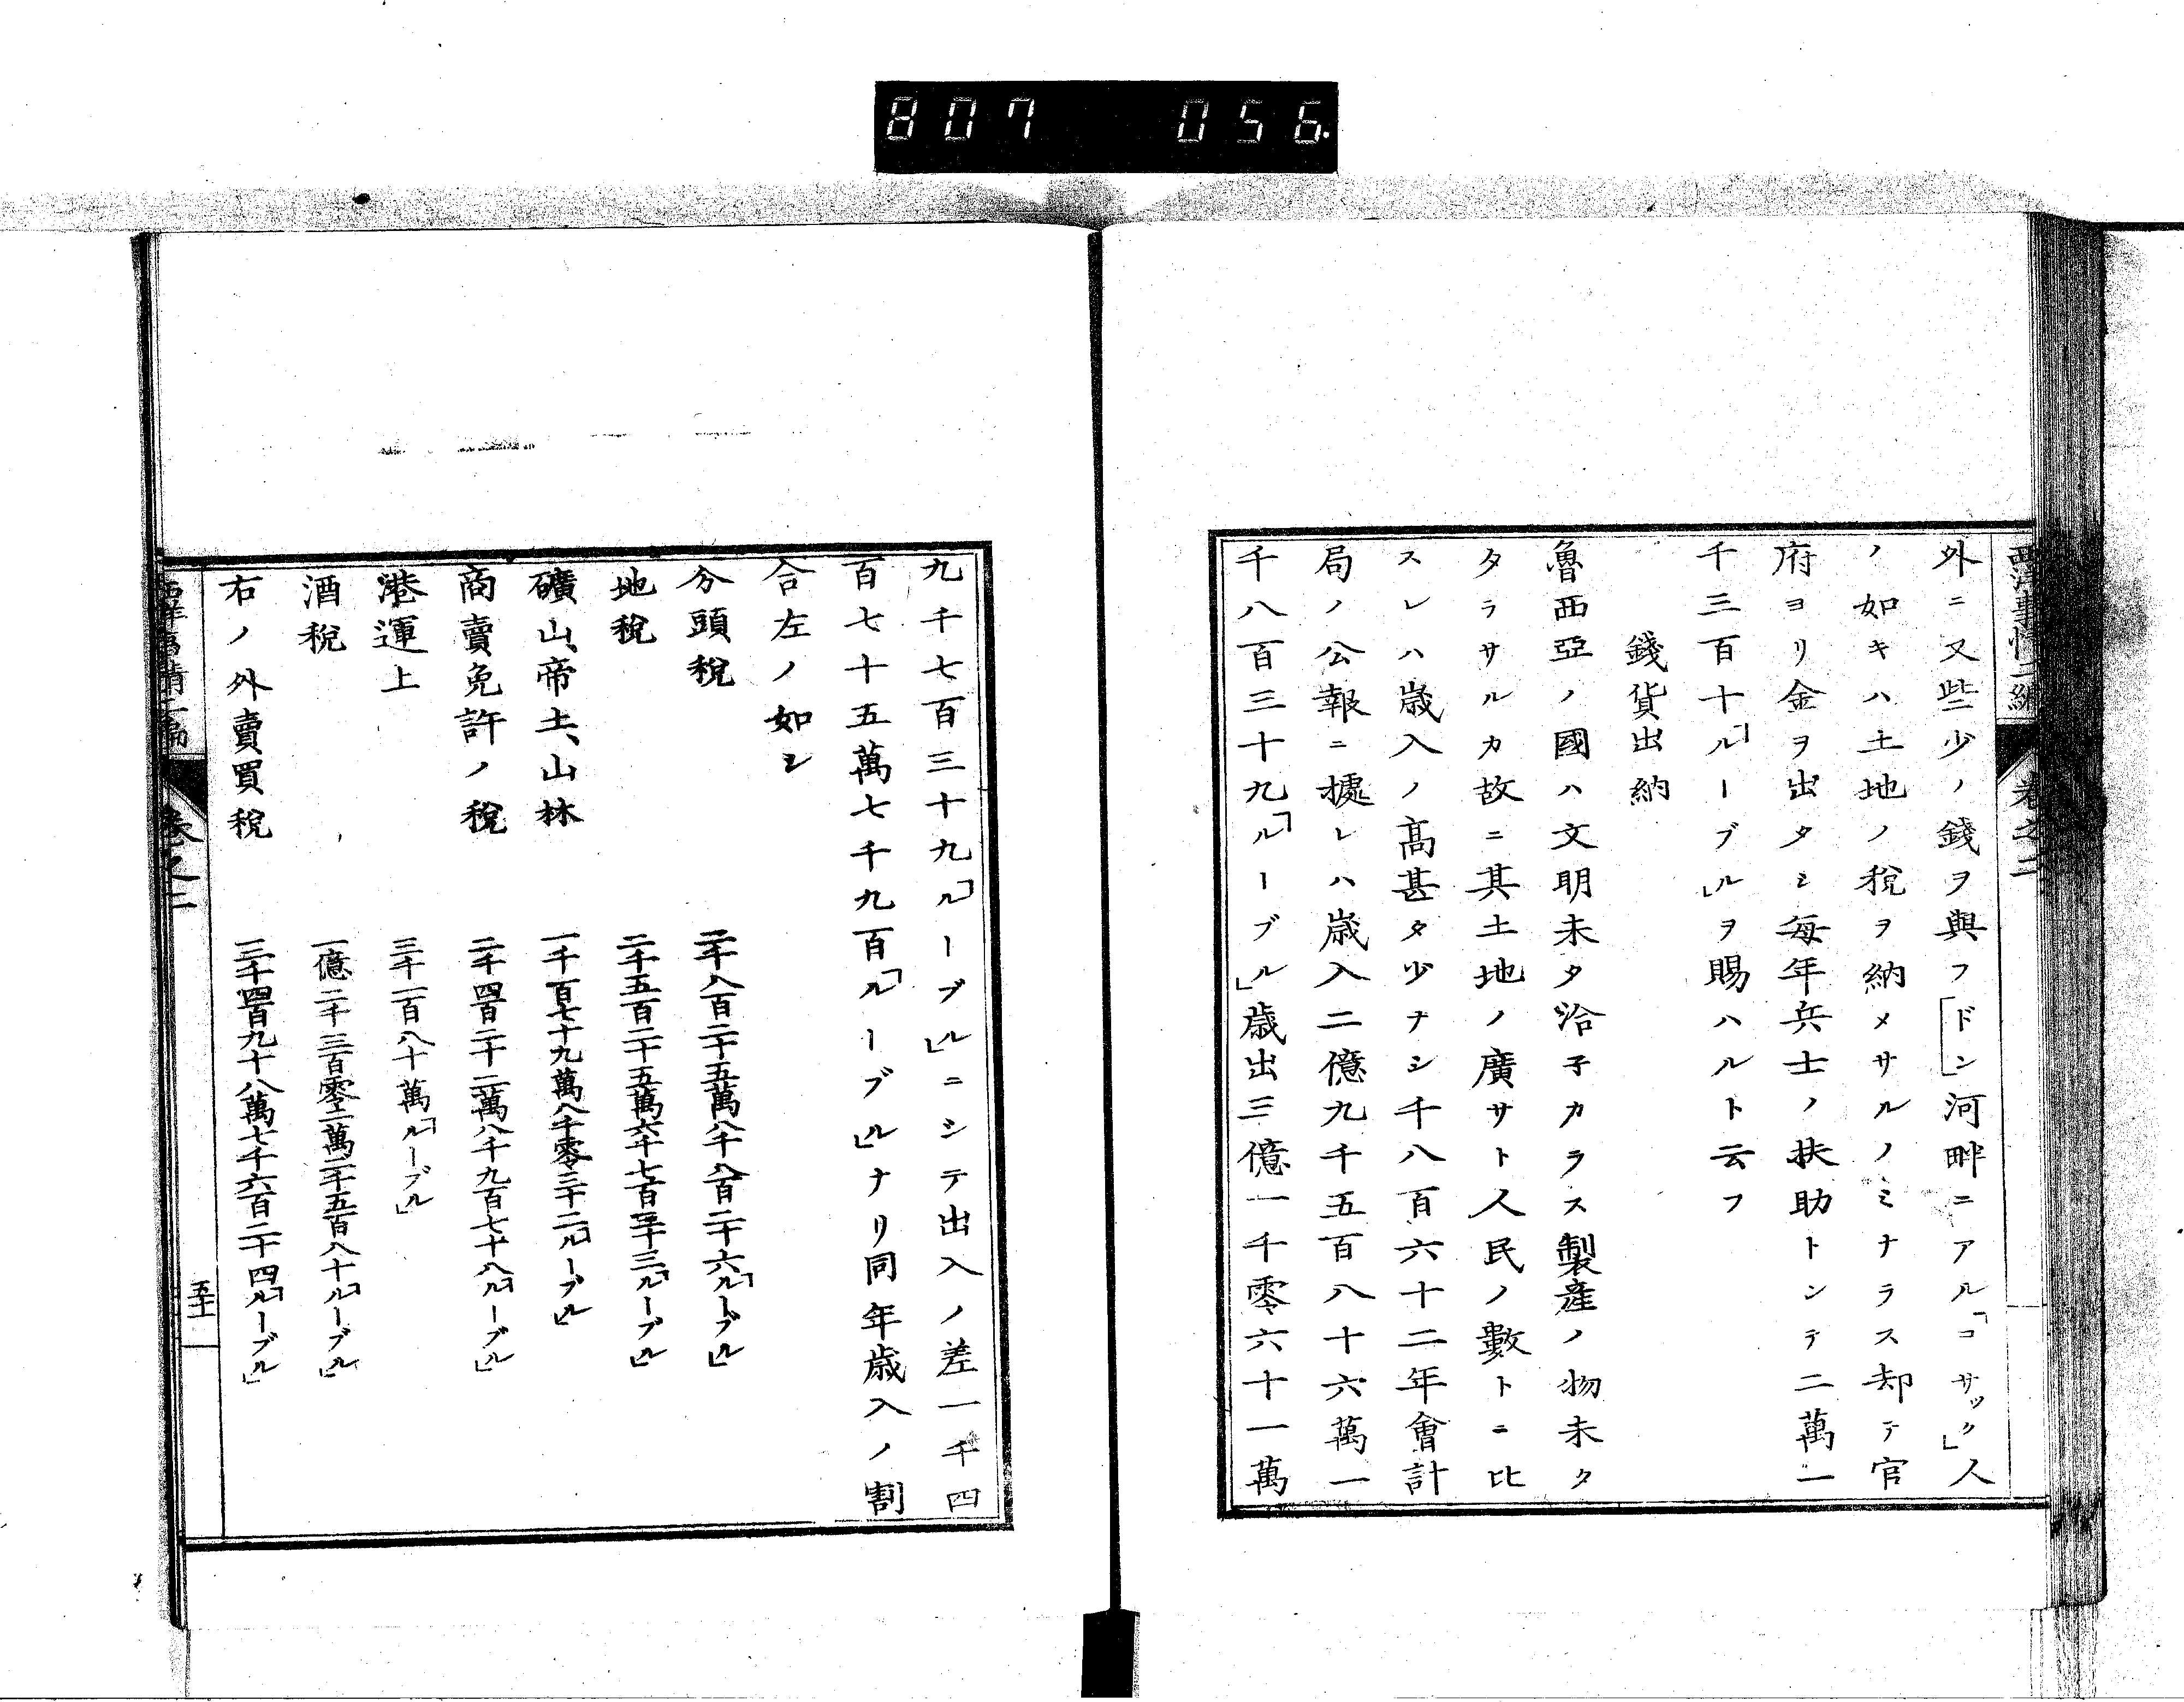 807 056
西洋事情二編 卷之二
外ニ又些少ノ錢ヲ與フ「ドン」河畔ニアル「コサック」人
ノ如キハ土地ノ稅ヲ納メサルノミナラス却テ官
府ヨリ金ヲ出タシ每年兵士ノ扶助トシテ二萬一
千三百十「ルーブル」ヲ賜ハルト云フ
錢貨出納
魯西亞ノ國ハ文明未タ洽子カラス製產ノ物未タ
タラサルカ故ニ其土地ノ廣サト人民ノ數トニ比
スレハ歲入ノ高甚タ少ナシ千八百六十二年會計
局ノ公報ニ據レハ歲入二億九千五百八十六萬一
千八百三十九「ルーブル」歲出三億一千零六十一萬
九千七百三十九「ルーブル」ニシテ出入ノ差一千四
百七十五萬七千九百「ルーブル」ナリ同年歲入ノ割
合左ノ如シ
分頭稅 二千八百二十五萬八千八百二十六「ルーブル」
地稅 二千五百二十五萬六千七百三十三「ルーブル」
礦山、帝土、山林 一千百七十九萬八千零三十二「ルーブル」
商賣免許ノ稅 二千四百二十二萬八千九百七十八「ルーブル」
港運上 三千二百八十萬「ルーブル」
酒稅 一億二千三百零二萬二千五百八十「ルーブル」
右ノ外賣買稅 三千四百九十八萬七千六百二十四「ルーブル」
西洋事情二編 卷之二
五十一